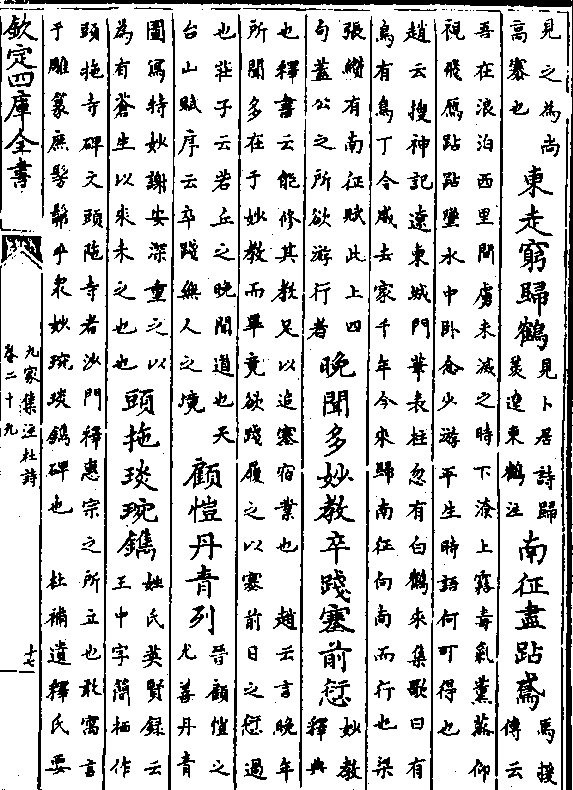 見之為尚
高寨也
東走窮歸鶴
見卜居詩歸
羨遼東鶴注
南征盡跕鳶
馬援
傳云
吾在浪泊西里間虜未滅之時下潦上霧毒氣薰蒸仰
視飛鳶跕跕墮水中卧念少游平生時語何可得也
趙云搜神記遼東城門華表柱忽有白鶴來集歌曰有
鳥有鳥丁令威去家千年今來歸南征向南而行也梁
張纘有南征賦此上四
句蓋公之所欲游行者
晚聞多妙教卒踐塞前愆
妙教
釋典
也釋書云能修其教足以追塞宿業也 趙云言晚年
所聞多在于妙教而畢竟欲踐履之以塞前日之愆過
也莊子云若丘之晚聞道也天
台山賦序云卒踐無人之境
顧愷丹青列
晉顧愷之
尤善丹青
圖寫特妙謝安深重之以
為有蒼生以來未之也也
頭拖琰琬鐫
姓氏英賢録云
王中字簡栖作
頭拖寺碑文頭陁寺者沙門釋惠宗之所立也敢寓言
于雕篆庶髣髴乎衆妙琬琰鐫碑也 杜補遺釋氏要
欽定四庫全書
九家集注杜詩
卷二十九
十七